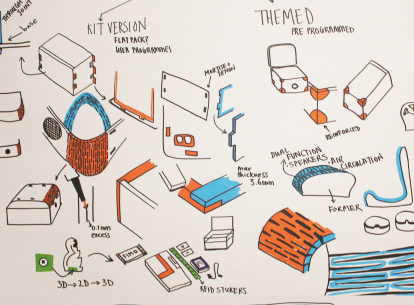 THROUGH
JOINT
base
KIT VERSION
FLATPACK?
USER PROGRAMMES
MORTISE +
TENON
THEMED
PRE PROGRAMMED
REINFORCED
DUAL FUNCTION
SPEAKERS, AIR
CIRCULATION
FORMER
max
thickness
3.6mm
0.1mm
excess
FIMO
3D→2D→3D
RFID STICKERS